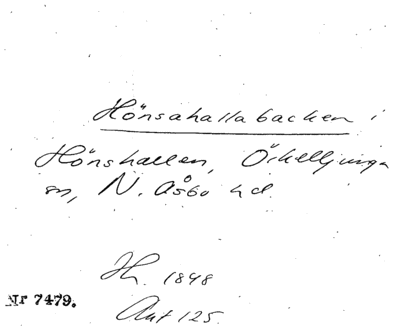 Hönsahallabacken i
Hönshallen, Örkelljunga
sn, N. Åsbo hd.
Hh. 1848
Ant 125.
Nr 7479.